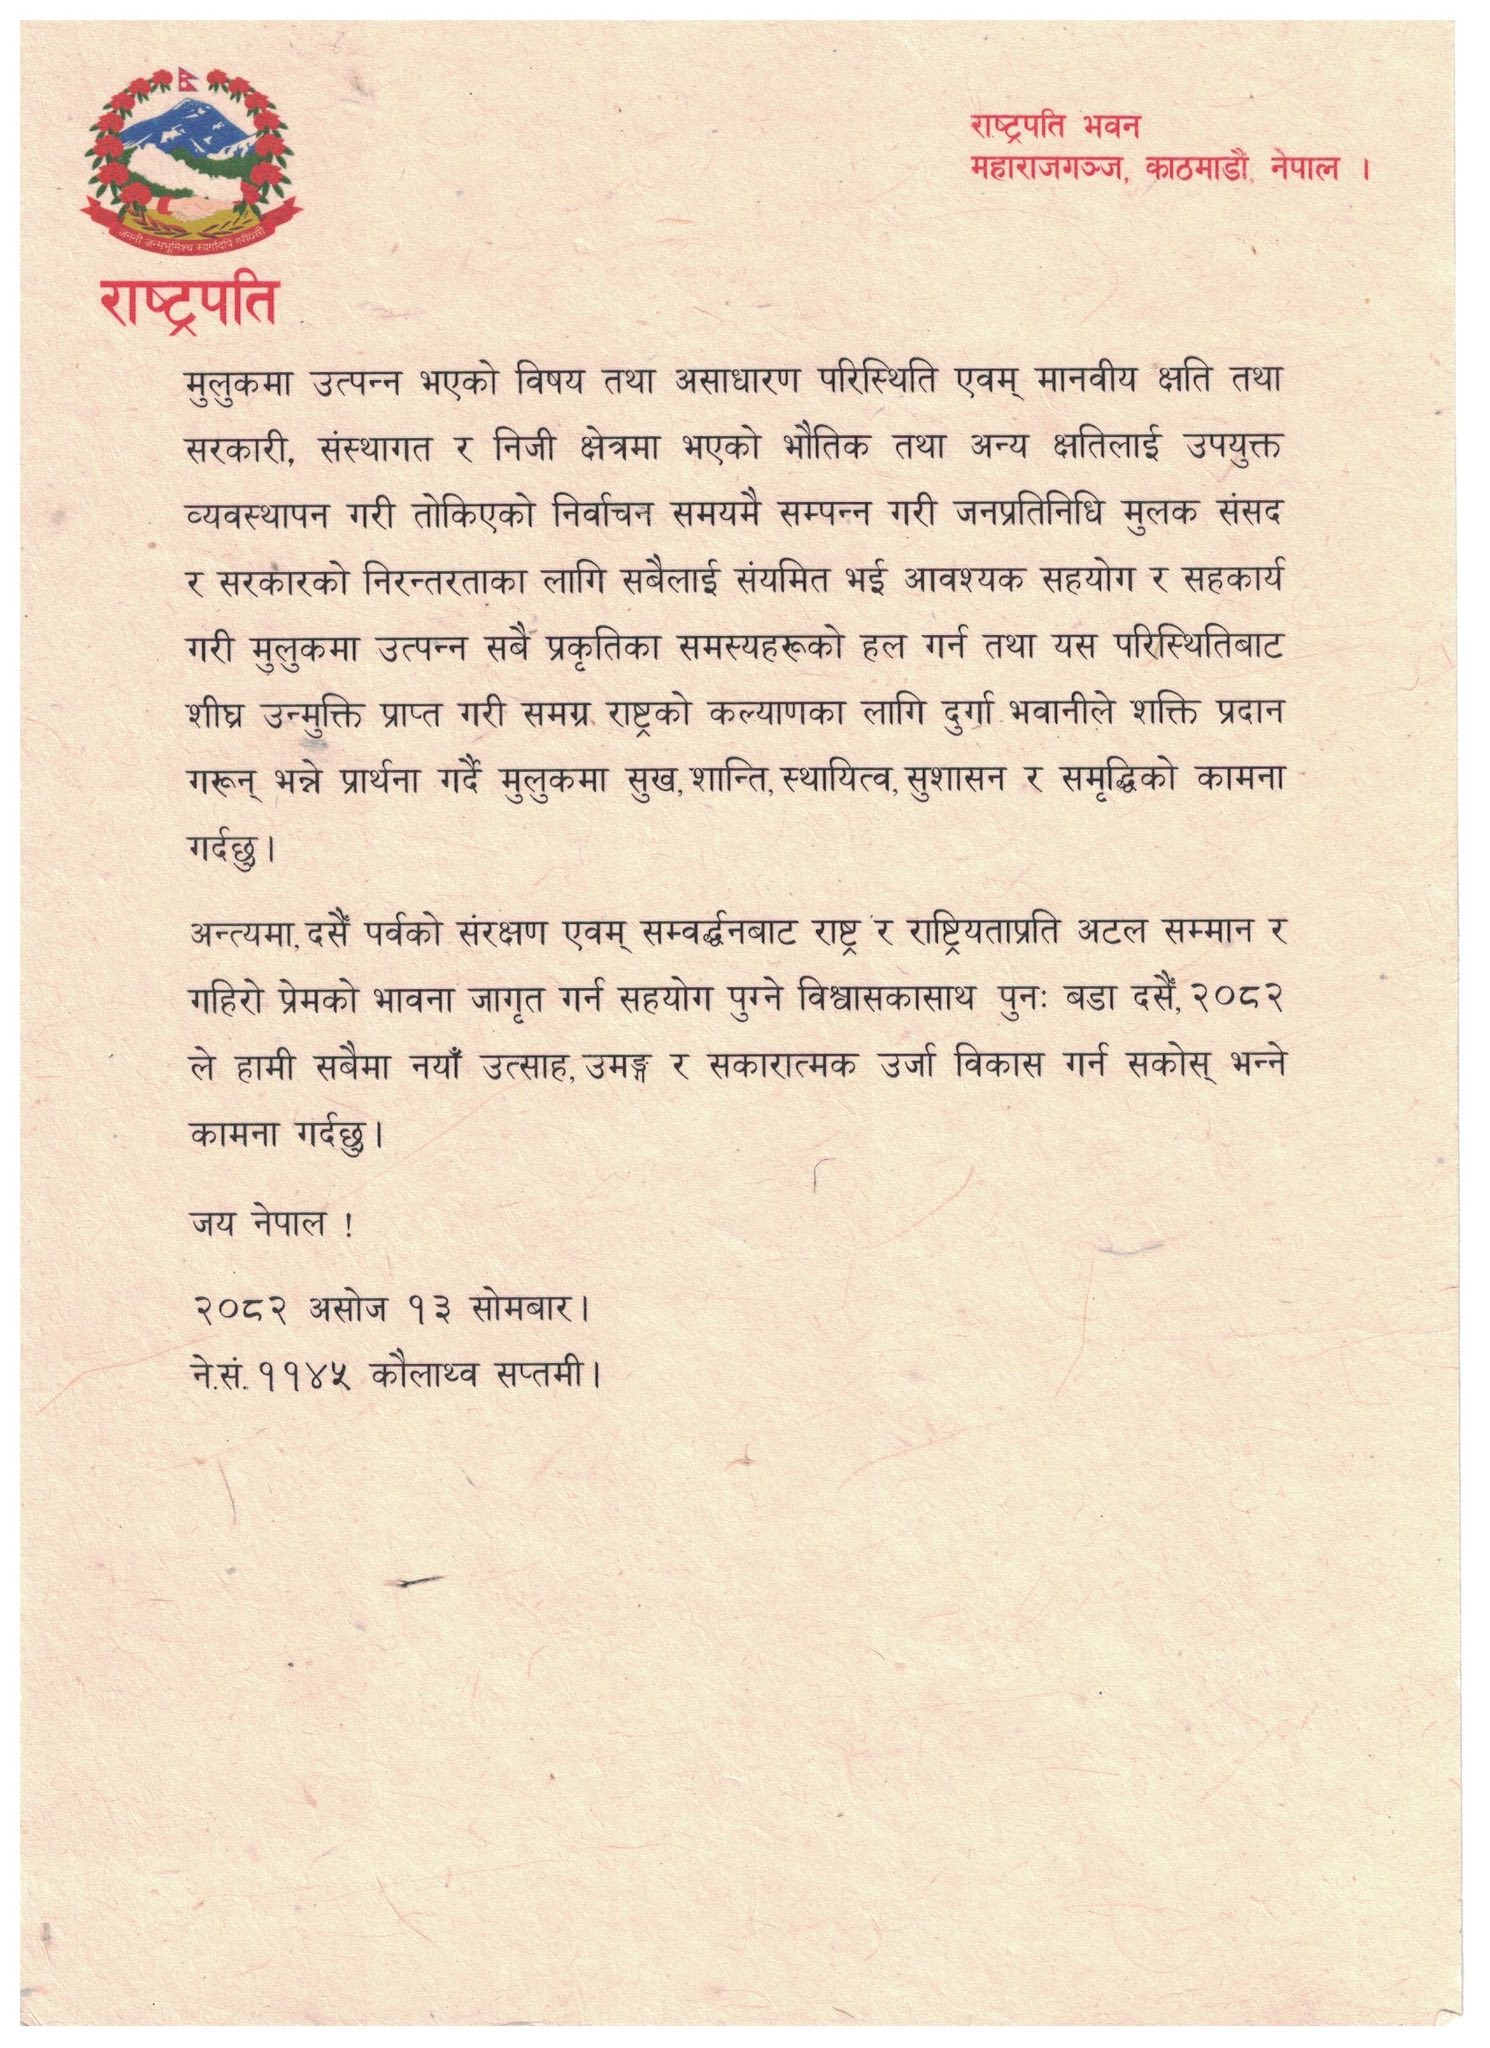 राष्ट्रपति भवन
महाराजगञ्ज, काठमाडौं, नेपाल ।
जननी जन्मभूमिश्च स्वर्गादपि गरीयसी
राष्ट्रपति
मुलुकमा उत्पन्न भएको विषय तथा असाधारण परिस्थिति एवम् मानवीय क्षति तथा
सरकारी, संस्थागत र निजी क्षेत्रमा भएको भौतिक तथा अन्य क्षतिलाई उपयुक्त
व्यवस्थापन गरी तोकिएको निर्वाचन समयमै सम्पन्न गरी जनप्रतिनिधि मुलक संसद
र सरकारको निरन्तरताका लागि सबैलाई संयमित भई आवश्यक सहयोग र सहकार्य
गरी मुलुकमा उत्पन्न सबै प्रकृतिका समस्यहरूको हल गर्न तथा यस परिस्थितिबाट
शीघ्र उन्मुक्ति प्राप्त गरी समग्र राष्ट्रको कल्याणका लागि दुर्गा भवानीले शक्ति प्रदान
गरून् भन्ने प्रार्थना गर्दै मुलुकमा सुख, शान्ति, स्थायित्व, सुशासन र समृद्धिको कामना
गर्दछु।
अन्त्यमा, दसैँ पर्वको संरक्षण एवम् सम्वर्द्धनबाट राष्ट्र र राष्ट्रियताप्रति अटल सम्मान र
गहिरो प्रेमको भावना जागृत गर्न सहयोग पुग्ने विश्वासकासाथ पुनः बडा दसैँ, २०८२
ले हामी सबैमा नयाँ उत्साह, उमङ्ग र सकारात्मक उर्जा विकास गर्न सकोस् भन्ने
कामना गर्दछु।
जय नेपाल !
२०८२ असोज १३ सोमबार।
ने.सं. ११४५ कौलाथ्व सप्तमी।